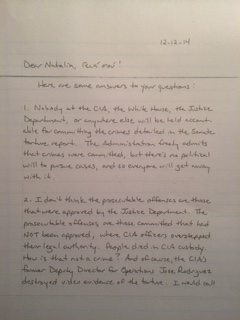 12-12-14
Dear Natalia,
Here are some answers to your questions:
1. Nobody at the CIA, the White House, the Justice
Department, or anywhere else will be held account-
able for committing the crimes detailed in the Senate
torture report. The Administration freely admits
that crimes were committed, but there's no political
will to pursue cases, and so everyone will get away
with it.
2. I don't think the prosecutable offenses are those
that were approved by the Justice Department. The
prosecutable offenses are those committed that had
NOT been approved, where CIA officers overstepped
their legal authority. People died in CIA custody.
How is that not a crime? And of course, the CIA's
former Deputy Director for Operations Jose Rodriguez
destroyed video evidence of the torture. I would call